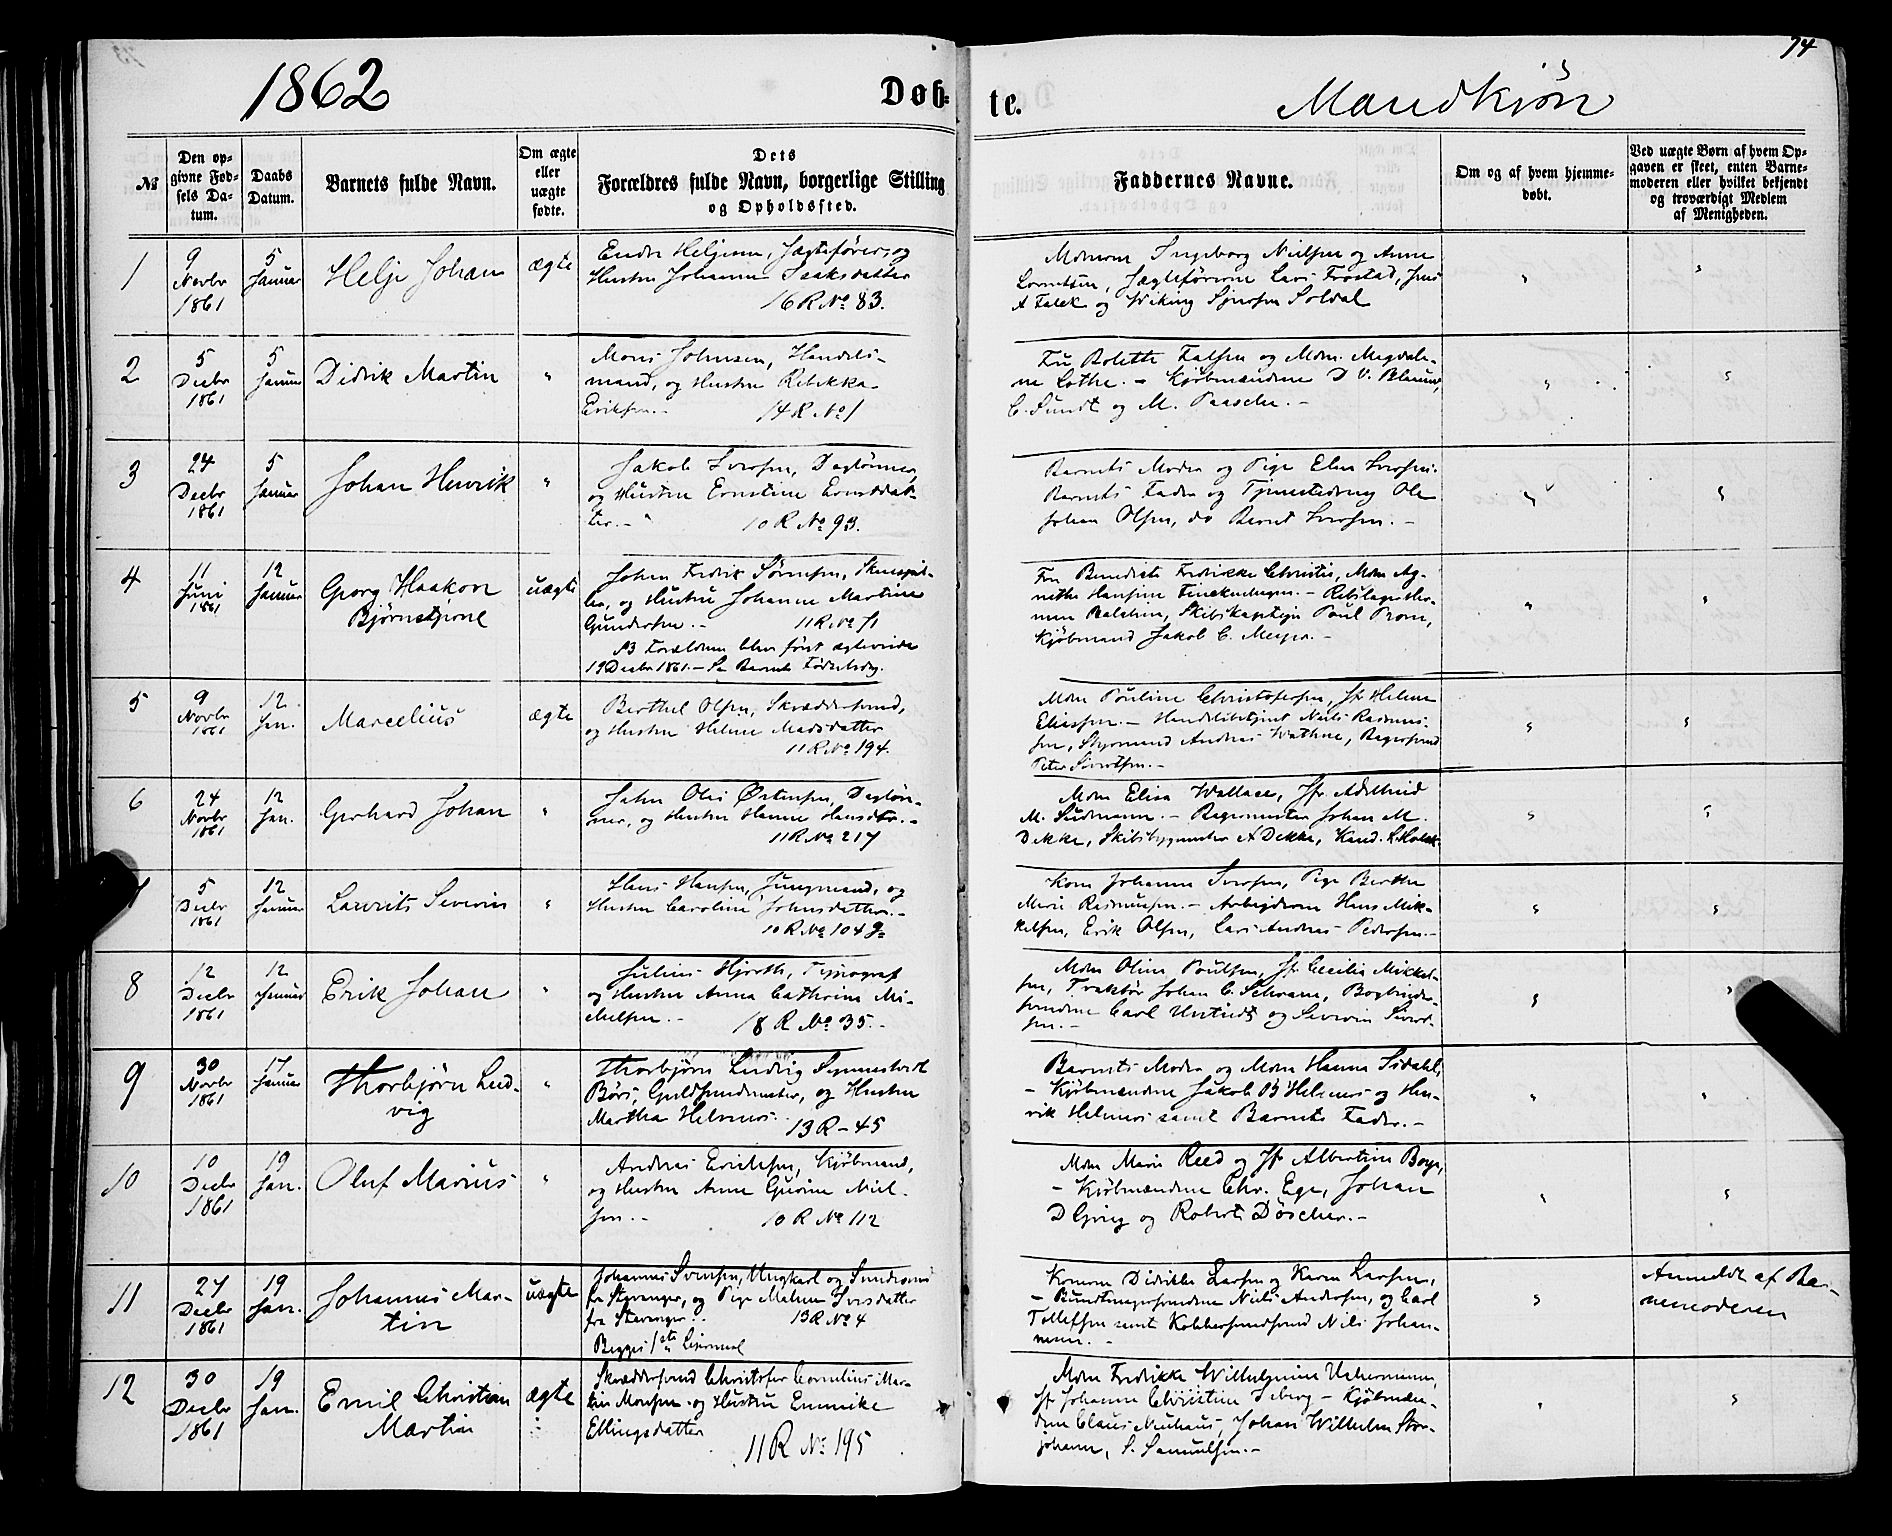 74
1862
Døb-
te.
Mandkjøn
№
Den op-
givne Fød-
sels Da-
tum.
Daabs
Datum.
Barnets fulde Navn.
Om ægte
eller
uægte
fødte.
Dets
Forældres fulde Navn, borgerlige Stilling
og Opholdssted.
Faddernes Navne.
Om og af hvem hjemme-
døbt.
Ved uægte Børn af hvem Op-
gaven er skeet, enten Barne-
moderen eller hvilket bekjendt
og troværdigt Medlem
af Menigheden.
1
9
Novbr
1861
5
Januar
Helje Johan
ægte
Endre Heljesen, Jægtefører, og
Hustru Johanne Isaksdatter
16 R No 83.
Monerne Ingeborg Nielsen og Anne
Lorentsen, Jægteførerne Lars Frostad, Jens
A Falck og Wiking Sjursen Soldal
2
5
Decbr
1861
5
Januar
Didrik Martin
"
Mons Johnsen, Handels-
mand, og Hustru Rebekka
Eriksen.-
14 R No 1
Fru Bolette Falsen og Mdm. Magdale-
ne Lothe. - Kjøbmændene D V.
C. Sundt og M. Paasche. -
3
24
Decbr
1861
5
Januar
Johan Henrik
"
Jakob Iversen, Daglønner,
og Hustru Ernstine Ernstdat-
ter. - "
10 R No 93.
Barnets Moder og Pige Elen Iversen.
Barnets Fader og Tjenestedreng Ole
Johan Olsen, do Bernt Iversen. -
4
11
Juni
1861
12
Januar
Georg Haakon
Bjørnstjerne
uægte
Johan Fredrik Sørensen, Skuespil-
ler, og Hustru Johanne Martine
Gundersen. -
11 R No 71
NB Forældrene blev først ægteviede
19 Decbr 1861. - Se Barnets Fødselsdag.
Fru Benedicte Fredrikke Christie, Mdm Ag-
nethe Hansine Finckenhagen. -
Skibskaptein Poul Prom,
Kjøbmand Jakob C. Meyer. -
5
9
Novbr
1861
12
Jan.
Marcelius
ægte
Berthel Olsen, Skræddersvend,
og Hustru Helene Madsdatter
11 R No 194.
Mdm Pouline Christofersen, Jfr Helene
Eliassen. - Handelsbetjent Niels Rasmus-
sen, Styrmand Andreas Wathne, Bagersvend
Peter Sivertsen. -
6
24
Novbr
1861
12
Jan.
Gerhard Johan
"
John Olai Østensen, Dagløn-
ner, og Hustru Hanne Hansdtr. -
11 R No 217
Mdm Elisa Wallace, Jfr. Adelheid
M. Sudmann. - Bagermester Johan M.
Dekke, Skibsbygmester A Dekke, Kand.
5
Decbr
1861
12
Januar
Laurits Severin
"
Hans Hansen, Jungmand, og
Hustru Caroline Johnsdatter. -
10 R No 104
Kone Johanne Iversen, Pige Berthe
Marie Rasmussen. - Arbejderne Hans Mik-
kelsen, Erik Olsen, Lars Andreas Pedersen. -
8
12
Decbr
1861
12
Januar
Erik Johan
"
Julius Hjorth, Typograf
og Hustru Anna Cathrine Mi-
chelsen. -
18 R No 35. -
Mdm Oline Poulsen, Jfr Cecilia Mikkel-
sen, Traktør Johan C. Schram, Bogbinder-
svendene Carl og Severin Siverd-
sen. -
9
30
Novbr
1861
17
Januar
Thorbjørn Lud-
vig
"
Thorbjørn Ludvig Synnestvedt
Børs, Guldsmedmester, og Hustru
Martha Helmers.
13 R - 45
Barnets Moder og Mdm Hanna Sødahl,
- Kjøbmændene Jakob B Helmers og Hen-
rik Helmers samt Barnets Fader. -
10
10
Decbr
1861
19
Jan.
Oluf Marius
"
Andreas Ericksen, Kjøbmand,
og Hustru Anne Gurine Niel-
sen. -
10 R No 112
Mdm Marie Reed og Jfr Albertine Boye,
- Kjøbmændene Chr. Ege, Johan
D Grieg og Robert Döscher. -
11
27
Decbr
1861
19
Jan.
Johannes Mar-
tin
uægte
Johannes Svensen, Ungkarl og
fra Stavanger, og Pige Malene Iversdatter
fra Stavanger. -
13 R No 4
Begges 1ste Leiermaal
Konerne Didrikke Larsen og Karen Larsen,
- Bundtmagersvendene Niels Andersen, og Carl
Tollefsen samt Kobbersmedsvend Nils Johan-
nesen. -
Anmeldt af Bar-
nemoderen
12
30
Decbr
1861
19
Jan.
Emil Christian
Martin
ægte
Skræddersvend Christofer Cornelius Mar-
tin Monsen og Hustru Emmike
Ellingsdatter
11 R No 195
Mdm Fredrikke Wilhelmine Uchermann,
Jfr Johanne Christine Isberg - Kjøbmæn-
dene Claus Neuhaus, Johan Wilhelm Stor-
johann, S. Samuelsen. -